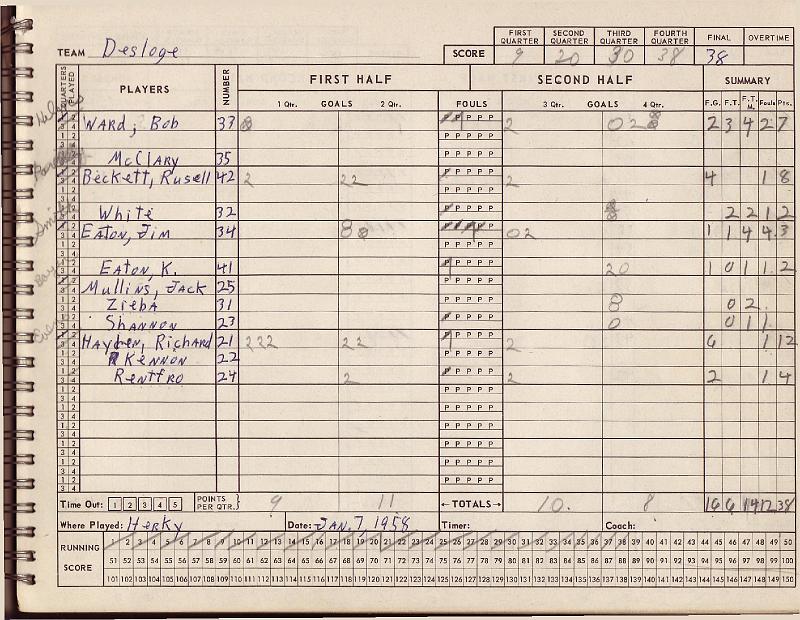 FIRST QUARTER SECOND QUARTER THIRD QUARTER FOURTH QUARTER FINAL OVERTIME
TEAM Desloge SCORE 9 20 30 38 38
QUARTERS PLAYED PLAYERS NUMBER FIRST HALF SECOND HALF SUMMARY
1 Qtr. GOALS 2 Qtr. FOULS 3 Qtr. GOALS 4 Qtr. F.G. F.T. F.T.M. Fouls Pts.
WARD, Bob 33 2 2 3 4 2 7
McClary 35
Beckett, Rusell 42 2 22 2 4 1 8
White 32 2 2 1 2
EATON, Jim 34 02 1 1 4 4 3
EATON, K. 41 20 1 0 1 1 2
Mullins, Jack 25
Zieba 31 0 2
SHANNON 23 0 0 1 1
Hayden, Richard 21 222 22 2 6 1 12
KENNON 22
Rentfro 24 2 2 2 1 4
Time Out: 1 2 3 4 5 POINTS PER QTR. 9 11 ←TOTALS→ 10. 8 16 6 14 12 38
Where Played: Herky Date: JAN. 7, 1958 Timer: Coach:
RUNNING SCORE
1 2 3 4 5 6 7 8 9 10 11 12 13 14 15 16 17 18 19 20 21 22 23 24 25 26 27 28 29 30 31 32 33 34 35 36 37 38 39 40 41 42 43 44 45 46 47 48 49 50
51 52 53 54 55 56 57 58 59 60 61 62 63 64 65 66 67 68 69 70 71 72 73 74 75 76 77 78 79 80 81 82 83 84 85 86 87 88 89 90 91 92 93 94 95 96 97 98 99 100
101 102 103 104 105 106 107 108 109 110 111 112 113 114 115 116 117 118 119 120 121 122 123 124 125 126 127 128 129 130 131 132 133 134 135 136 137 138 139 140 141 142 143 144 145 146 147 148 149 150